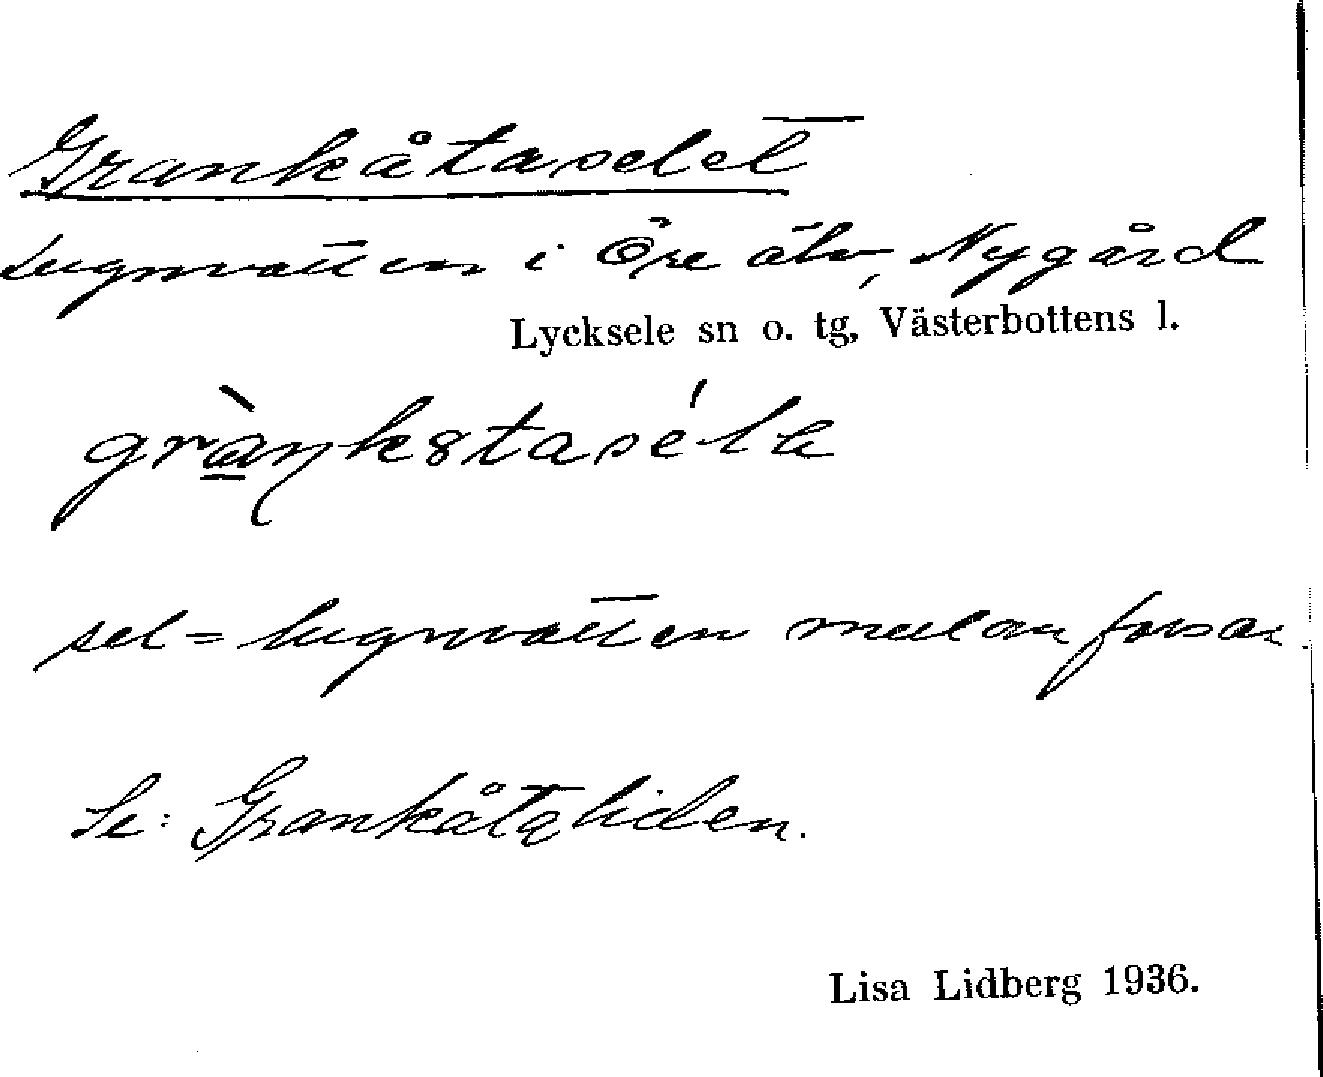 Grankåtaselet
Lugnvatten i Öre älv, Nygård
Lycksele sn o. tg, Västerbottens l.
sel = lugnvatten mellan forsar
Se: Grankåtaliden.
Lisa Lidberg 1936.